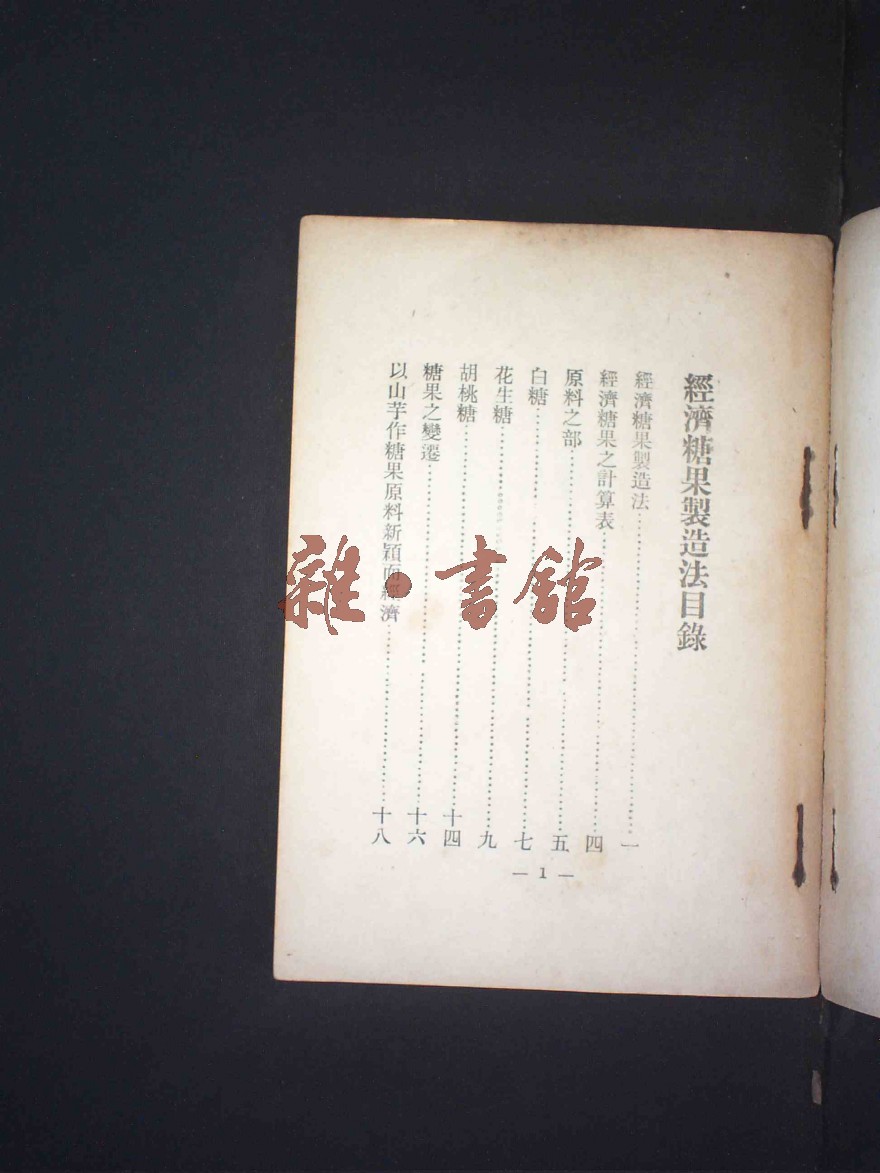 經濟糖果製造法目錄
經濟糖果製造法……一
經濟糖果之計算表……四
原料之部……五
白糖……七
花生糖……九
胡桃糖……十四
糖果之變遷……十六
以山芋作糖果原料新穎而經濟……十八
— 1 —
雜·書館